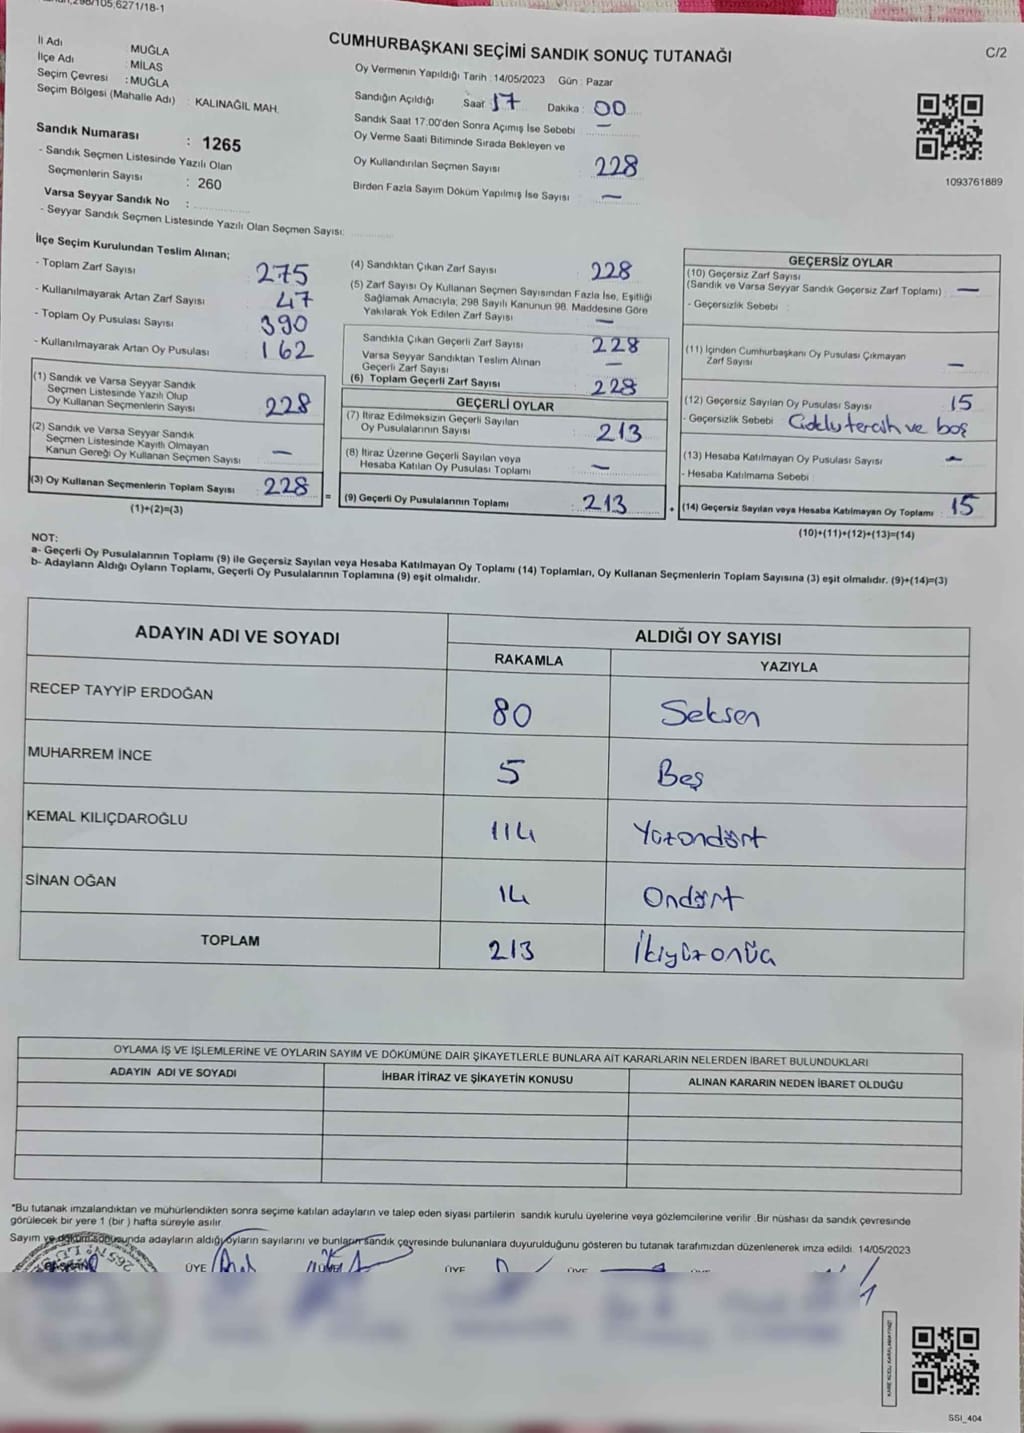 298/105,6271/18-1
CUMHURBAŞKANI SEÇİMİ SANDIK SONUÇ TUTANAĞI
C/2
İl Adı : MUĞLA
İlçe Adı : MİLAS
Seçim Çevresi : MUĞLA
Seçim Bölgesi (Mahalle Adı) : KALINAĞIL MAH.
Sandık Numarası : 1265
- Sandık Seçmen Listesinde Yazılı Olan
Seçmenlerin Sayısı : 260
Varsa Seyyar Sandık No :
- Seyyar Sandık Seçmen Listesinde Yazılı Olan Seçmen Sayısı:
Oy Vermenin Yapıldığı Tarih : 14/05/2023 Gün : Pazar
Sandığın Açıldığı Saat : 17 Dakika : 00
Sandık Saat 17.00'den Sonra Açımış İse Sebebi : —
Oy Verme Saati Bitiminde Sırada Bekleyen ve
Oy Kullandırılan Seçmen Sayısı : 228
Birden Fazla Sayım Döküm Yapılmış İse Sayısı : —
1093761889
İlçe Seçim Kurulundan Teslim Alınan;
- Toplam Zarf Sayısı 275
- Kullanılmayarak Artan Zarf Sayısı 47
- Toplam Oy Pusulası Sayısı 390
- Kullanılmayarak Artan Oy Pusulası 162
(1) Sandık ve Varsa Seyyar Sandık
Seçmen Listesinde Yazılı Olup
Oy Kullanan Seçmenlerin Sayısı 228
(2) Sandık ve Varsa Seyyar Sandık
Seçmen Listesinde Kayıtlı Olmayan
Kanun Gereği Oy Kullanan Seçmen Sayısı —
(3) Oy Kullanan Seçmenlerin Toplam Sayısı 228
(1)+(2)=(3)
=
(4) Sandıktan Çıkan Zarf Sayısı 228
(5) Zarf Sayısı Oy Kullanan Seçmen Sayısından Fazla İse, Eşitliği
Sağlamak Amacıyla, 298 Sayılı Kanunun 98. Maddesine Göre
Yakılarak Yok Edilen Zarf Sayısı —
Sandıkta Çıkan Geçerli Zarf Sayısı 228
Varsa Seyyar Sandıktan Teslim Alınan
Geçerli Zarf Sayısı —
(6) Toplam Geçerli Zarf Sayısı 228
GEÇERLİ OYLAR
(7) İtiraz Edilmeksizin Geçerli Sayılan
Oy Pusulalarının Sayısı 213
(8) İtiraz Üzerine Geçerli Sayılan veya
Hesaba Katılan Oy Pusulası Toplamı —
(9) Geçerli Oy Pusulalarının Toplamı 213
+
GEÇERSİZ OYLAR
(10) Geçersiz Zarf Sayısı
(Sandık ve Varsa Seyyar Sandık Geçersiz Zarf Toplamı) : —
- Geçersizlik Sebebi :
(11) İçinden Cumhurbaşkanı Oy Pusulası Çıkmayan
Zarf Sayısı —
(12) Geçersiz Sayılan Oy Pusulası Sayısı 15
- Geçersizlik Sebebi : Çiddlutercih ve boş
(13) Hesaba Katılmayan Oy Pusulası Sayısı —
- Hesaba Katılmama Sebebi :
(14) Geçersiz Sayılan veya Hesaba Katılmayan Oy Toplamı : 15
(10)+(11)+(12)+(13)=(14)
NOT:
a- Geçerli Oy Pusulalarının Toplamı (9) ile Geçersiz Sayılan veya Hesaba Katılmayan Oy Toplamı (14) Toplamları, Oy Kullanan Seçmenlerin Toplam Sayısına (3) eşit olmalıdır. (9)+(14)=(3)
b- Adayların Aldığı Oyların Toplamı, Geçerli Oy Pusulalarının Toplamına (9) eşit olmalıdır.
ADAYIN ADI VE SOYADI ALDIĞI OY SAYISI
RAKAMLA YAZIYLA
RECEP TAYYİP ERDOĞAN 80 Seksen
MUHARREM İNCE 5 Beş
KEMAL KILIÇDAROĞLU 114 Yüzondört
SİNAN OĞAN 14 Ondört
TOPLAM 213 İkiyüzonüç
OYLAMA İŞ VE İŞLEMLERİNE VE OYLARIN SAYIM VE DÖKÜMÜNE DAİR ŞİKAYETLERLE BUNLARA AİT KARARLARIN NELERDEN İBARET BULUNDUKLARI
ADAYIN ADI VE SOYADI İHBAR İTİRAZ VE ŞİKAYETİN KONUSU ALINAN KARARIN NEDEN İBARET OLDUĞU
*Bu tutanak imzalandıktan ve mühürlendikten sonra seçime katılan adayların ve talep eden siyasi partilerin sandık kurulu üyelerine veya gözlemcilerine verilir. Bir nüshası da sandık çevresinde
görülecek bir yere 1 (bir ) hafta süreyle asılır.
Sayım ve döküm sonusunda adayların aldığı oyların sayılarını ve bunların sandık çevresinde bulunanlara duyurulduğunu gösteren bu tutanak tarafımızdan düzenlenerek imza edildi. 14/05/2023
BAŞKAN ÜYE ÜYE ÜYE ÜYE
SSI_404